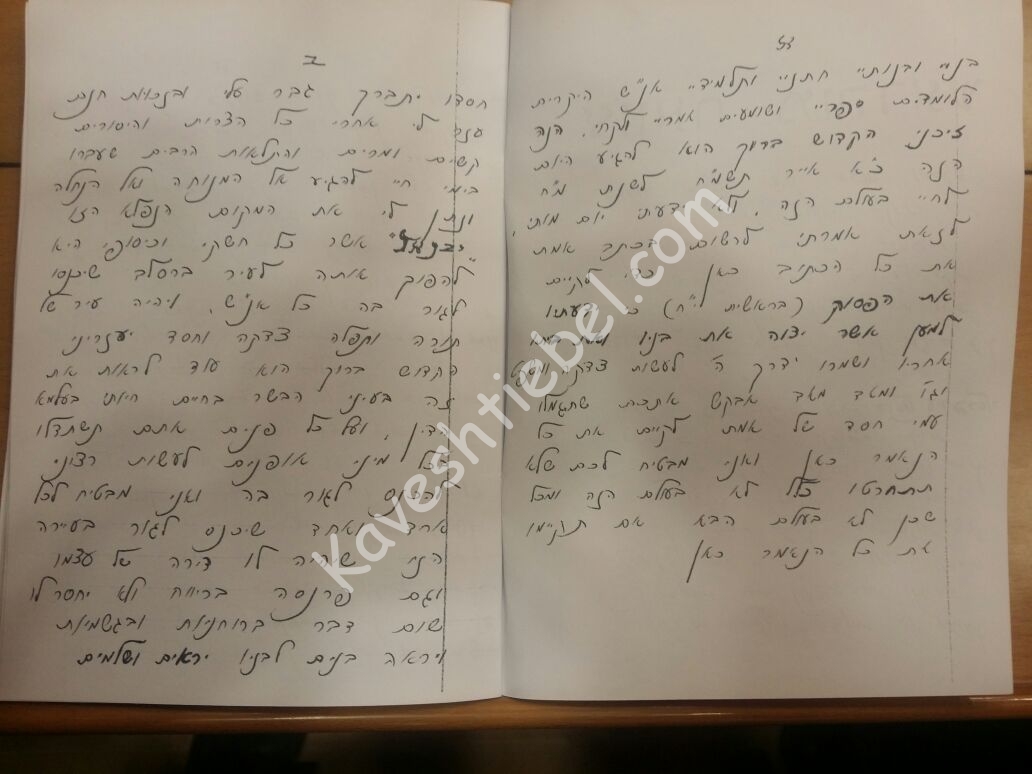 צד
בניי ובנותיי חתניי ותלמידיי אנ״ש היקרים
הלומדים ספריי ושומעים אמריי ולקחי, הנה
זיכני הקדוש ברוך הוא להגיע היום
הנה כ״א אייר תשמ״ח לשנת מ״ח
לחיי בעולם הזה, ולא ידעתי יום מותי,
לזאת אמרתי לרשום בכתב אמת
את כל הכתוב כאן כדי לקיים
את הפסוק (בראשית י״ח) כי ידעתיו
למען אשר יצוה את בניו ואת ביתו
אחריו ושמרו דרך ה׳ לעשות צדקה ומשפט
וגו׳ ומאד מאד אבקש אתכם שתגמלו
עמי חסד של אמת לקיים את כל
הנאמר כאן ואני מבטיח לכם שלא
תתחרטו כלל לא בעולם הזה ומכל
שכן לא בעולם הבא אם תקיימו
את כל הנאמר כאן
ב
חסדו יתברך גבר עלי ובזכות חנם
עזר לי אחרי כל הצרות והיסורים
קשים ומרים והתלאות הרבים שעברו
בימי חיי להגיע אל המנוחה ואל הנחלה
ונתן לי את המקום הנפלא הזה
"יבנאל" אשר כל חשקי וכיסופי היא
להפוך אותה לעיר ברסלב שיכנסו
לגור בה כל אנ״ש, ויהיה עיר של
תורה ותפלה צדקה וחסד יעזריני
הקדוש ברוך הוא עוד לראות את
זה בעיני הבשר בחיים חיותי בעלמא
הדין, ועל כל פנים אתם תשתדלו
בכל מיני אופנים לעשות רצוני
להכנס לגור בה ואני מבטיח לכל
אחד ואחד שיכנס לגור בעיירה
הזו שיהיה לו דירה של עצמו
וגם פרנסה בריוח ולא יחסר לו
שום דבר ברוחניות ובגשמיות
ויראה בנים לבניו יראים ושלמים
kaveshtiebel.com